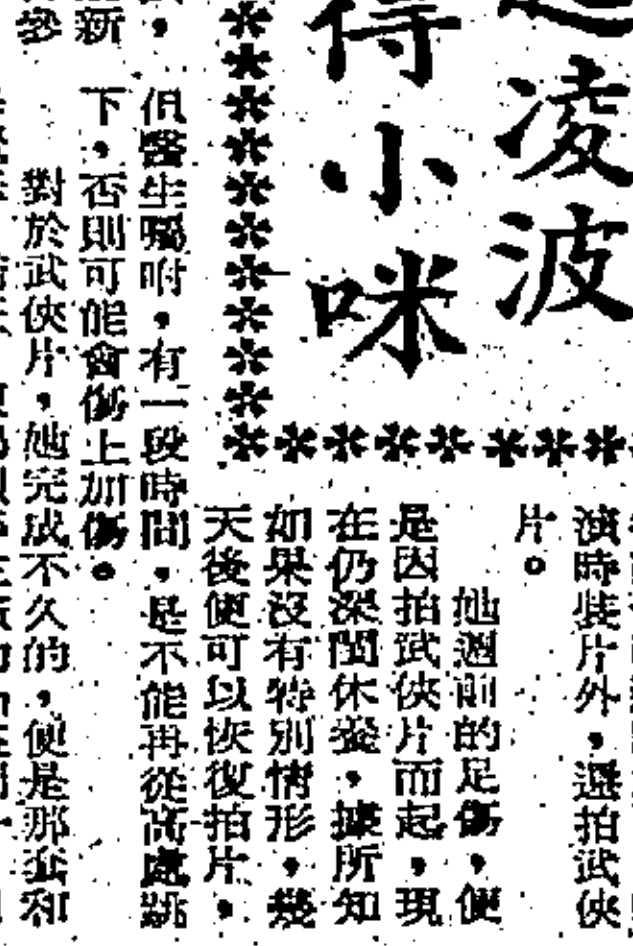 凌波
得小咪
演時裝片外，還拍武俠
片。
她週前的足傷，便
是因拍武俠片而起，現
在仍深閨休養，據所知
如果沒有特別情形，幾
天後便可以恢復拍片，
但醫生囑咐，有一段時間，是不能再從高處跳
下，否則可能會傷上加傷。
對於武俠片，她完成不久的，便是那套和